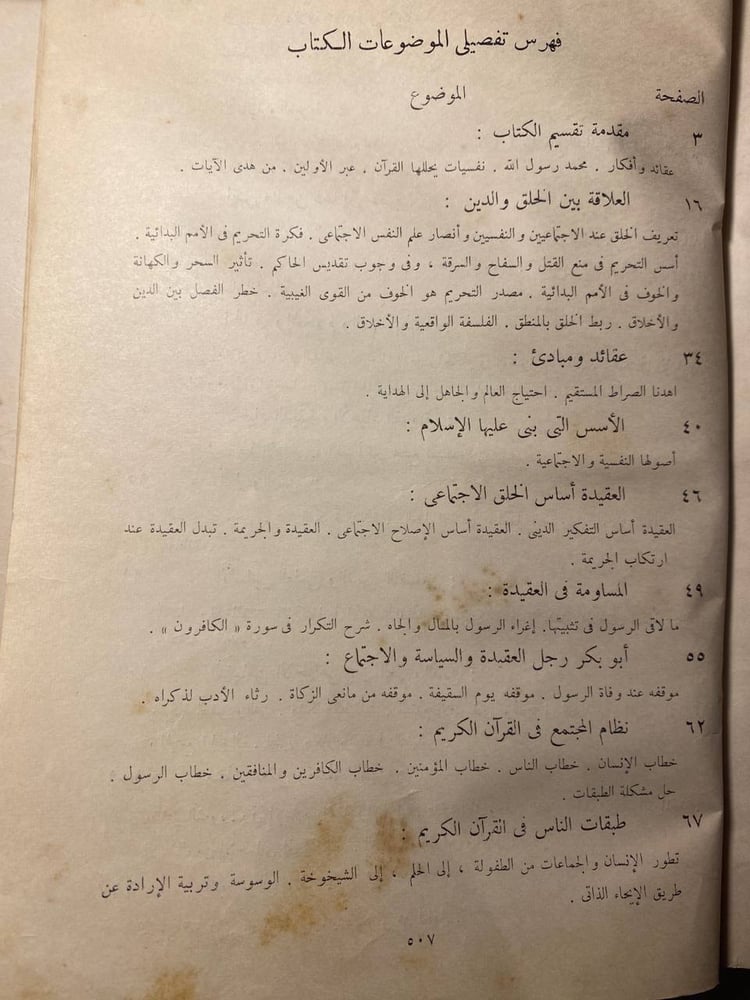 فهرس تفصيلى الموضوعات الكتاب
الصفحة الموضوع
٣ مقدمة تقسيم الكتاب :
عقائد وأفكار . محمد رسول الله . نفسيات يحللها القرآن . عبر الأولين . من هدى الآيات .
١٦ العلاقة بين الخلق والدين :
تعريف الخلق عند الاجتماعيين والنفسيين وأنصار علم النفس الاجتماعى . فكرة التحريم فى الأمم البدائية .
أسس التحريم فى منع القتل والسفاح والسرقة ، وفى وجوب تقديس الحاكم . تأثير السحر والكهانة
والخوف فى الأمم البدائية . مصدر التحريم هو الخوف من القوى الغيبية . خطر الفصل بين الدين
والأخلاق . ربط الخلق بالمنطق . الفلسفة الواقعية والأخلاق .
٣٤ عقائد ومبادئ :
اهدنا الصراط المستقيم . احتياج العالم والجاهل إلى الهداية .
٤٠ الأسس التى بنى عليها الإسلام :
أصولها النفسية والاجتماعية .
٤٦ العقيدة أساس الخلق الاجتماعى :
العقيدة أساس التفكير الدينى . العقيدة أساس الإصلاح الاجتماعى . العقيدة والجريمة . تبدل العقيدة عند
ارتكاب الجريمة .
٤٩ المساومة فى العقيدة :
ما لاقى الرسول فى تثبيتها. إغراء الرسول بالمال والجاه . شرح التكرار فى سورة « الكافرون » .
٥٥ أبو بكر رجل العقيدة والسياسة والاجتماع :
موقفه عند وفاة الرسول . موقفه يوم السقيفة . موقفه من مانعى الزكاة . رثاء الأدب لذكراه .
٦٢ نظام المجتمع فى القرآن الكريم :
خطاب الإنسان . خطاب الناس . خطاب المؤمنين . خطاب الكافرين والمنافقين . خطاب الرسول .
حل مشكلة الطبقات .
٦٧ طبقات الناس فى القرآن الكريم :
تطور الإنسان والجماعات من الطفولة ، إلى الحلم ، إلى الشيخوخة . الوسوسة وتربية الإرادة عن
طريق الإيحاء الذاتى .
٥٠٧